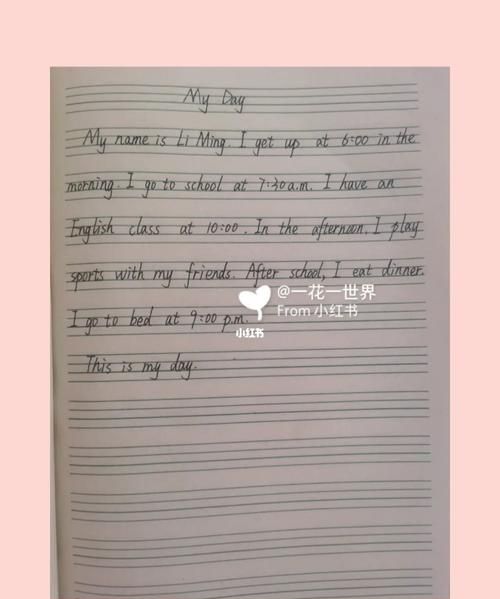 My Day
My name is Li Ming. I get up at 6:00 in the
morning. I go to school at 7:30 a.m. I have an
English class at 10:00. In the afternoon, I play
sports with my friends. After school, I eat dinner.
@一花一世界
From 小红书
小红书
I go to bed at 9:00 p.m.
This is my day.